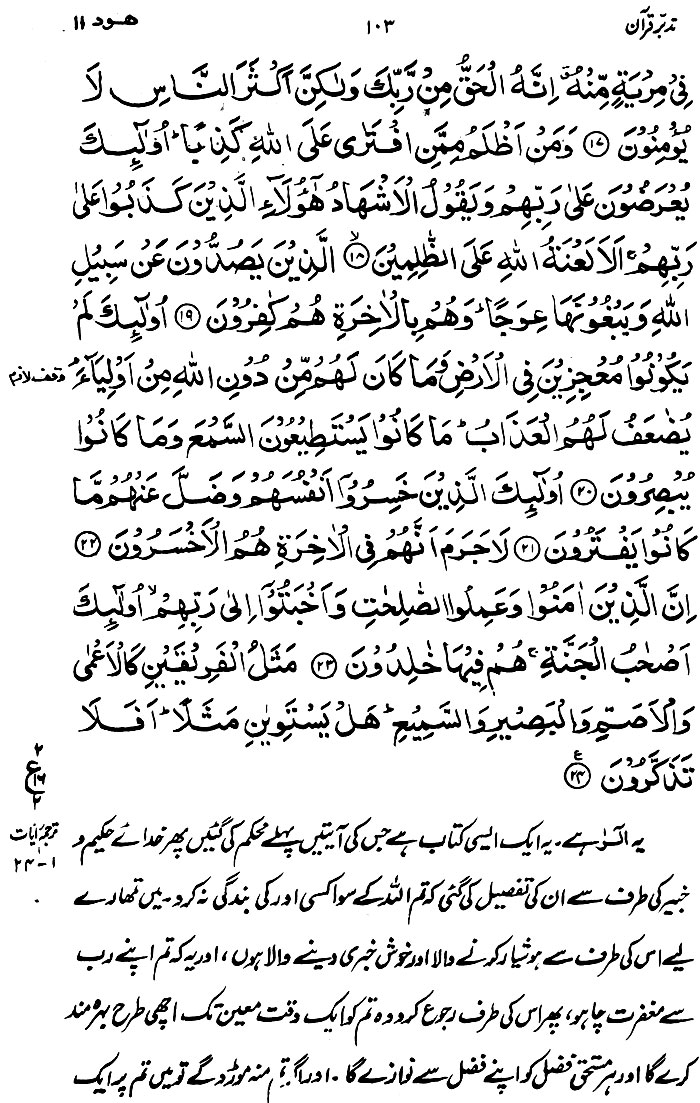 تدبّرِ قرآن ۱۰۳ ھود ۱۱
فِىْ مِرْيَةٍ مِّنْهُ ۚ اِنَّهُ الْحَقُّ مِنْ رَّبِّكَ وَلٰكِنَّ اَكْثَرَ النَّاسِ لَا
يُؤْمِنُوْنَ ﴿۱۷﴾ وَمَنْ اَظْلَمُ مِمَّنِ افْتَرٰى عَلَى اللّٰهِ كَذِبًا ؕ اُولٰٓئِكَ
يُعْرَضُوْنَ عَلٰى رَبِّهِمْ وَيَقُوْلُ الْاَشْهَادُ هٰٓؤُلَآءِ الَّذِيْنَ كَذَبُوْا عَلٰى
رَبِّهِمْ ۚ اَلَا لَعْنَةُ اللّٰهِ عَلَى الظّٰلِمِيْنَ ﴿۱۸﴾ۙ الَّذِيْنَ يَصُدُّوْنَ عَنْ سَبِيْلِ
اللّٰهِ وَيَبْغُوْنَهَا عِوَجًا ؕ وَهُمْ بِالْاٰخِرَةِ هُمْ كٰفِرُوْنَ ﴿۱۹﴾ اُولٰٓئِكَ لَمْ
يَكُوْنُوْا مُعْجِزِيْنَ فِى الْاَرْضِ وَمَا كَانَ لَهُمْ مِّنْ دُوْنِ اللّٰهِ مِنْ اَوْلِيَآءَ ۘ وقف لازم
يُضٰعَفُ لَهُمُ الْعَذَابُ ؕ مَا كَانُوْا يَسْتَطِيْعُوْنَ السَّمْعَ وَمَا كَانُوْا
يُبْصِرُوْنَ ﴿۲۰﴾ اُولٰٓئِكَ الَّذِيْنَ خَسِرُوْٓا اَنْفُسَهُمْ وَضَلَّ عَنْهُمْ مَّا
كَانُوْا يَفْتَرُوْنَ ﴿۲۱﴾ لَا جَرَمَ اَنَّهُمْ فِى الْاٰخِرَةِ هُمُ الْاَخْسَرُوْنَ ﴿۲۲﴾
اِنَّ الَّذِيْنَ اٰمَنُوْا وَعَمِلُوا الصّٰلِحٰتِ وَاَخْبَتُوْٓا اِلٰى رَبِّهِمْ ۙ اُولٰٓئِكَ
اَصْحٰبُ الْجَنَّةِ ۚ هُمْ فِيْهَا خٰلِدُوْنَ ﴿۲۳﴾ مَثَلُ الْفَرِيْقَيْنِ كَالْاَعْمٰى
وَالْاَصَمِّ وَالْبَصِيْرِ وَالسَّمِيْعِ ؕ هَلْ يَسْتَوِيٰنِ مَثَلًا ؕ اَفَلَا
تَذَكَّرُوْنَ ﴿۲۴﴾ع
۲ ع ۱۶ ۲
یہ الٓرٰ ہے۔ یہ ایک ایسی کتاب ہے جس کی آیتیں پہلے محکم کی گئیں پھر خدائے حکیم و
ترجمۂ آیات
۱-۲۴
خبیر کی طرف سے ان کی تفصیل کی گئی کہ تم اللہ کے سوا کسی اور کی بندگی نہ کرو۔ میں تمھارے
لیے اس کی طرف سے ہوشیار کرنے والا اور خوش خبری دینے والا ہوں، اور یہ کہ تم اپنے رب
سے مغفرت چاہو، پھر اس کی طرف رجوع کرو وہ تم کو ایک وقت معین تک اچھی طرح بہرہ مند
کرے گا اور ہر مستحقِ فضل کو اپنے فضل سے نوازے گا۔ اور اگر تم منہ موڑو گے تو میں تم پر ایک